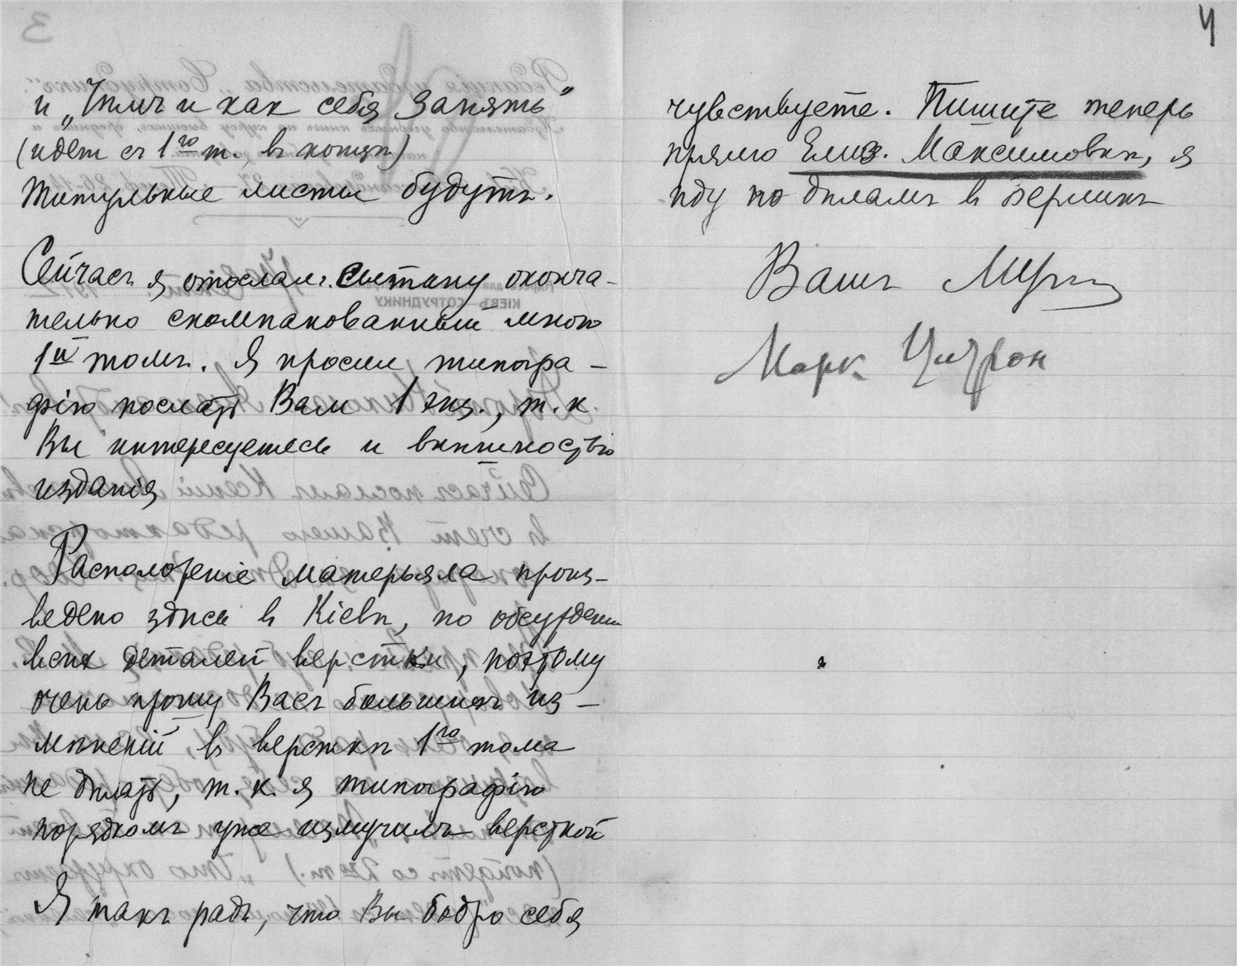 и „Чѣмъ и какъ себя занять"
(идет съ 1го т. въ концѣ)
Титульные листы будутъ.
Сейчасъ я отослалъ Сытину оконча-
тельно скомпанованный мною
1й томъ. Я просил типогра-
фію послать Вам 1 экз., т.к.
Вы интересуетесь и внѣшностью
изданія
Расположеніе матерьяла произ-
ведено здѣсь в Кіевѣ, по обсужденіи
всѣх деталей верстки, поэтому
очень прошу Васъ большихъ из-
мѣненій въ версткѣ 1го тома
не дѣлать, т.к. я типографію
порядкомъ уже измучилъ версткой
Я такъ радъ, что Вы бодро себя
4
чувствуете. Пишите теперь
прямо Елиз. Максимовнѣ, я
ѣду по дѣламъ в Берлинъ
Вашъ
Марк Цитрон